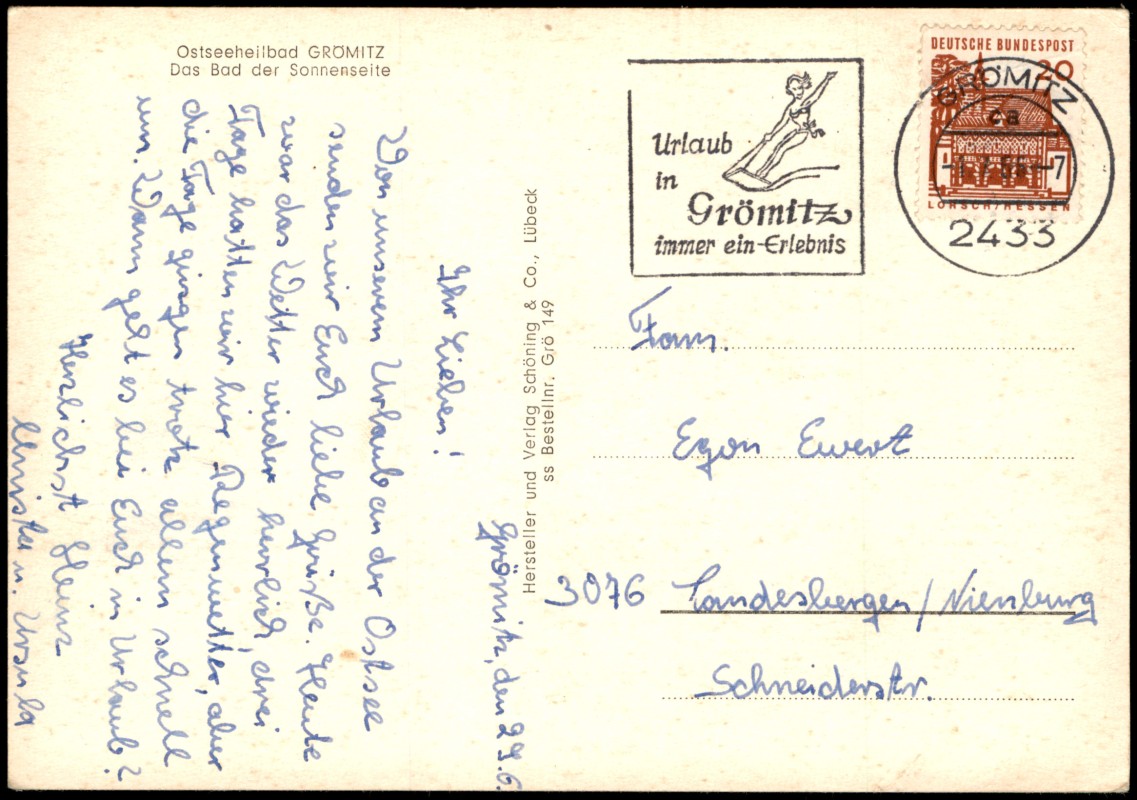 Ostseeheilbad GRÖMITZ
Das Bad der Sonnenseite
Grömitz, den 29.6.
Ihr Lieben!
Von unserem Urlaub an der Ostsee
senden wir Euch liebe Grüße. Heute
war das Wetter wieder herrlich, drei
Tage hatten wir hier Regenwetter, aber
die Tage gingen trotz allem schnell
um. Wann geht es bei Euch in Urlaub?
Herzlichst Heinz
u. Ursula
Hersteller und Verlag Schöning & Co., Lübeck
ss Bestellnr. Grö 149
Urlaub
in
Grömitz
immer ein Erlebnis
DEUTSCHE BUNDESPOST
20
LORSCH/HESSEN
GRÖMITZ
ca
-7
2433
Fam.
Egon Ewert
3076 Landesbergen/Nienburg
Schneiderstr.